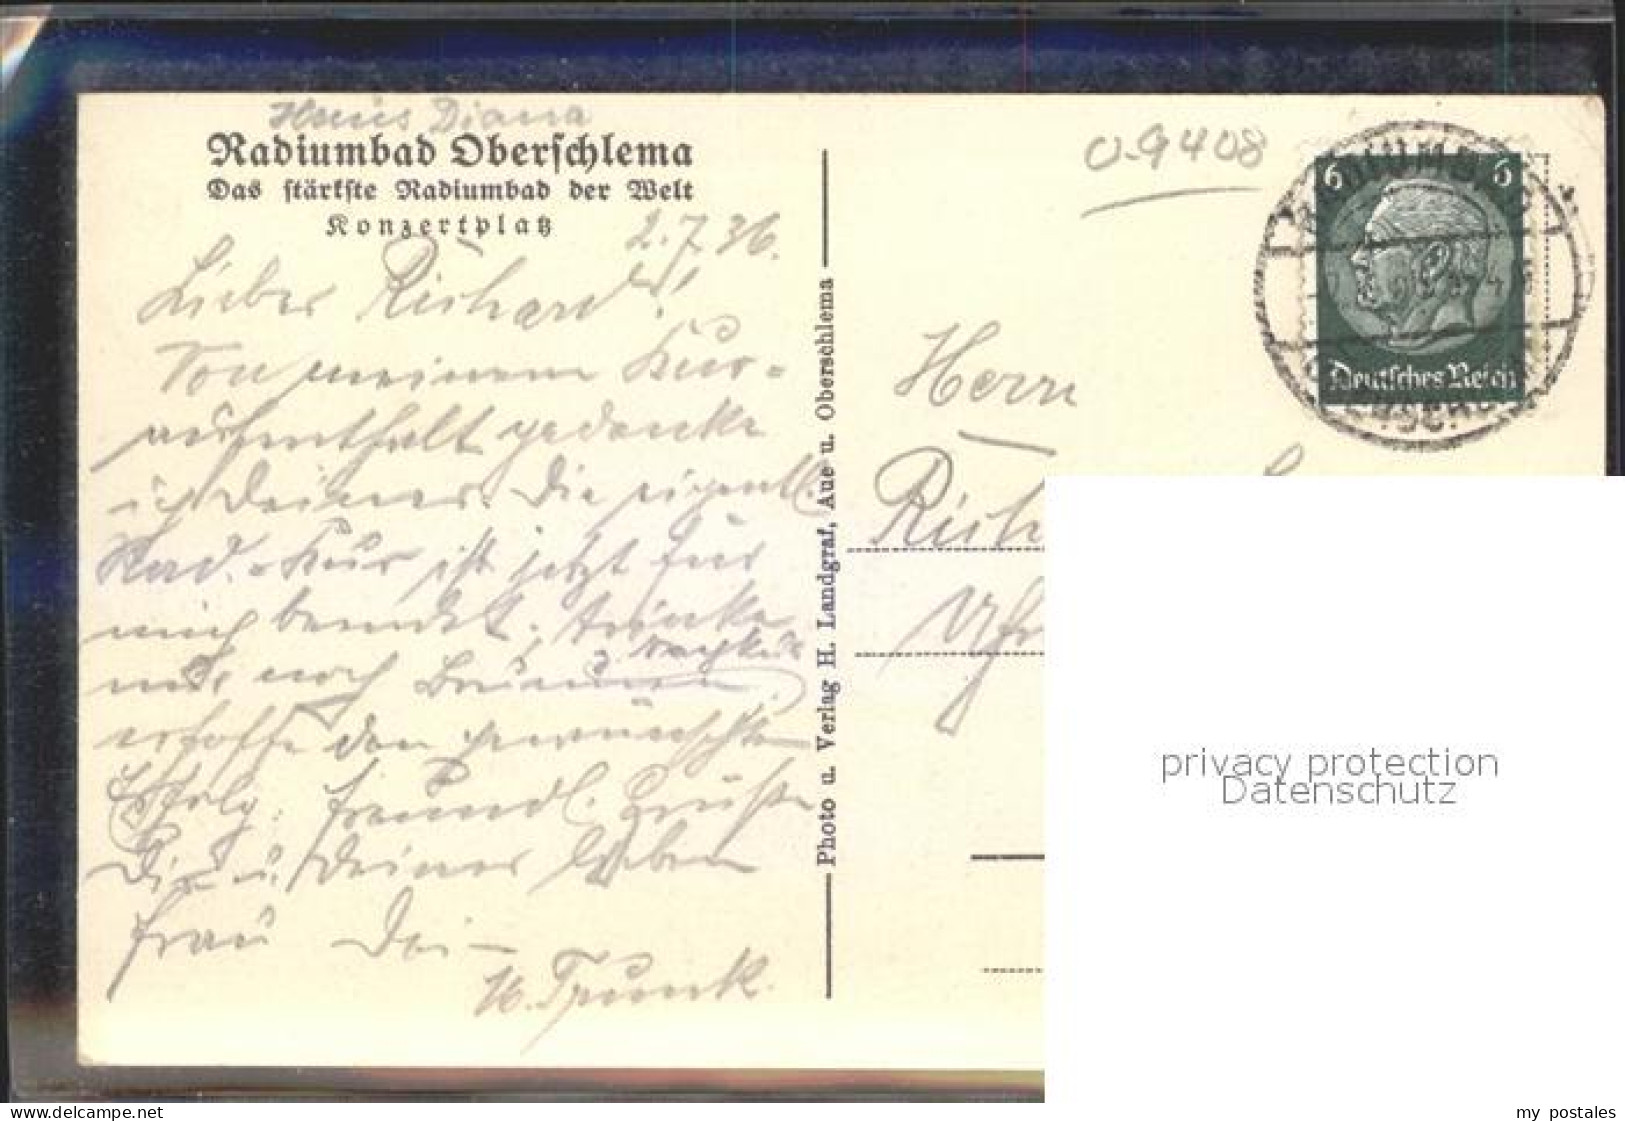 Haus Diana
Radiumbad Oberschlema
Das stärkste Radiumbad der Welt
Konzertplatz
2.7.36.
Lieber Richard!
Von meinem Kur-
aufenthalt gedenke
ich Deiner. Die eigentl.
Rad.-Kur ist jetzt für
mich beendet. trinke
nur noch Brunnen
u.
erhoffe den gewünschten
Erfolg. freundl. Grüße
Dir u. Deiner lieben
Frau Dei-
Trunk.
Photo u. Verlag H. Landgraf, Aue u. Oberschlema
0-9408
6 6
Deutsches Reich
Herrn
Rich
privacy protection
Datenschutz
my postales
www.delcampe.net